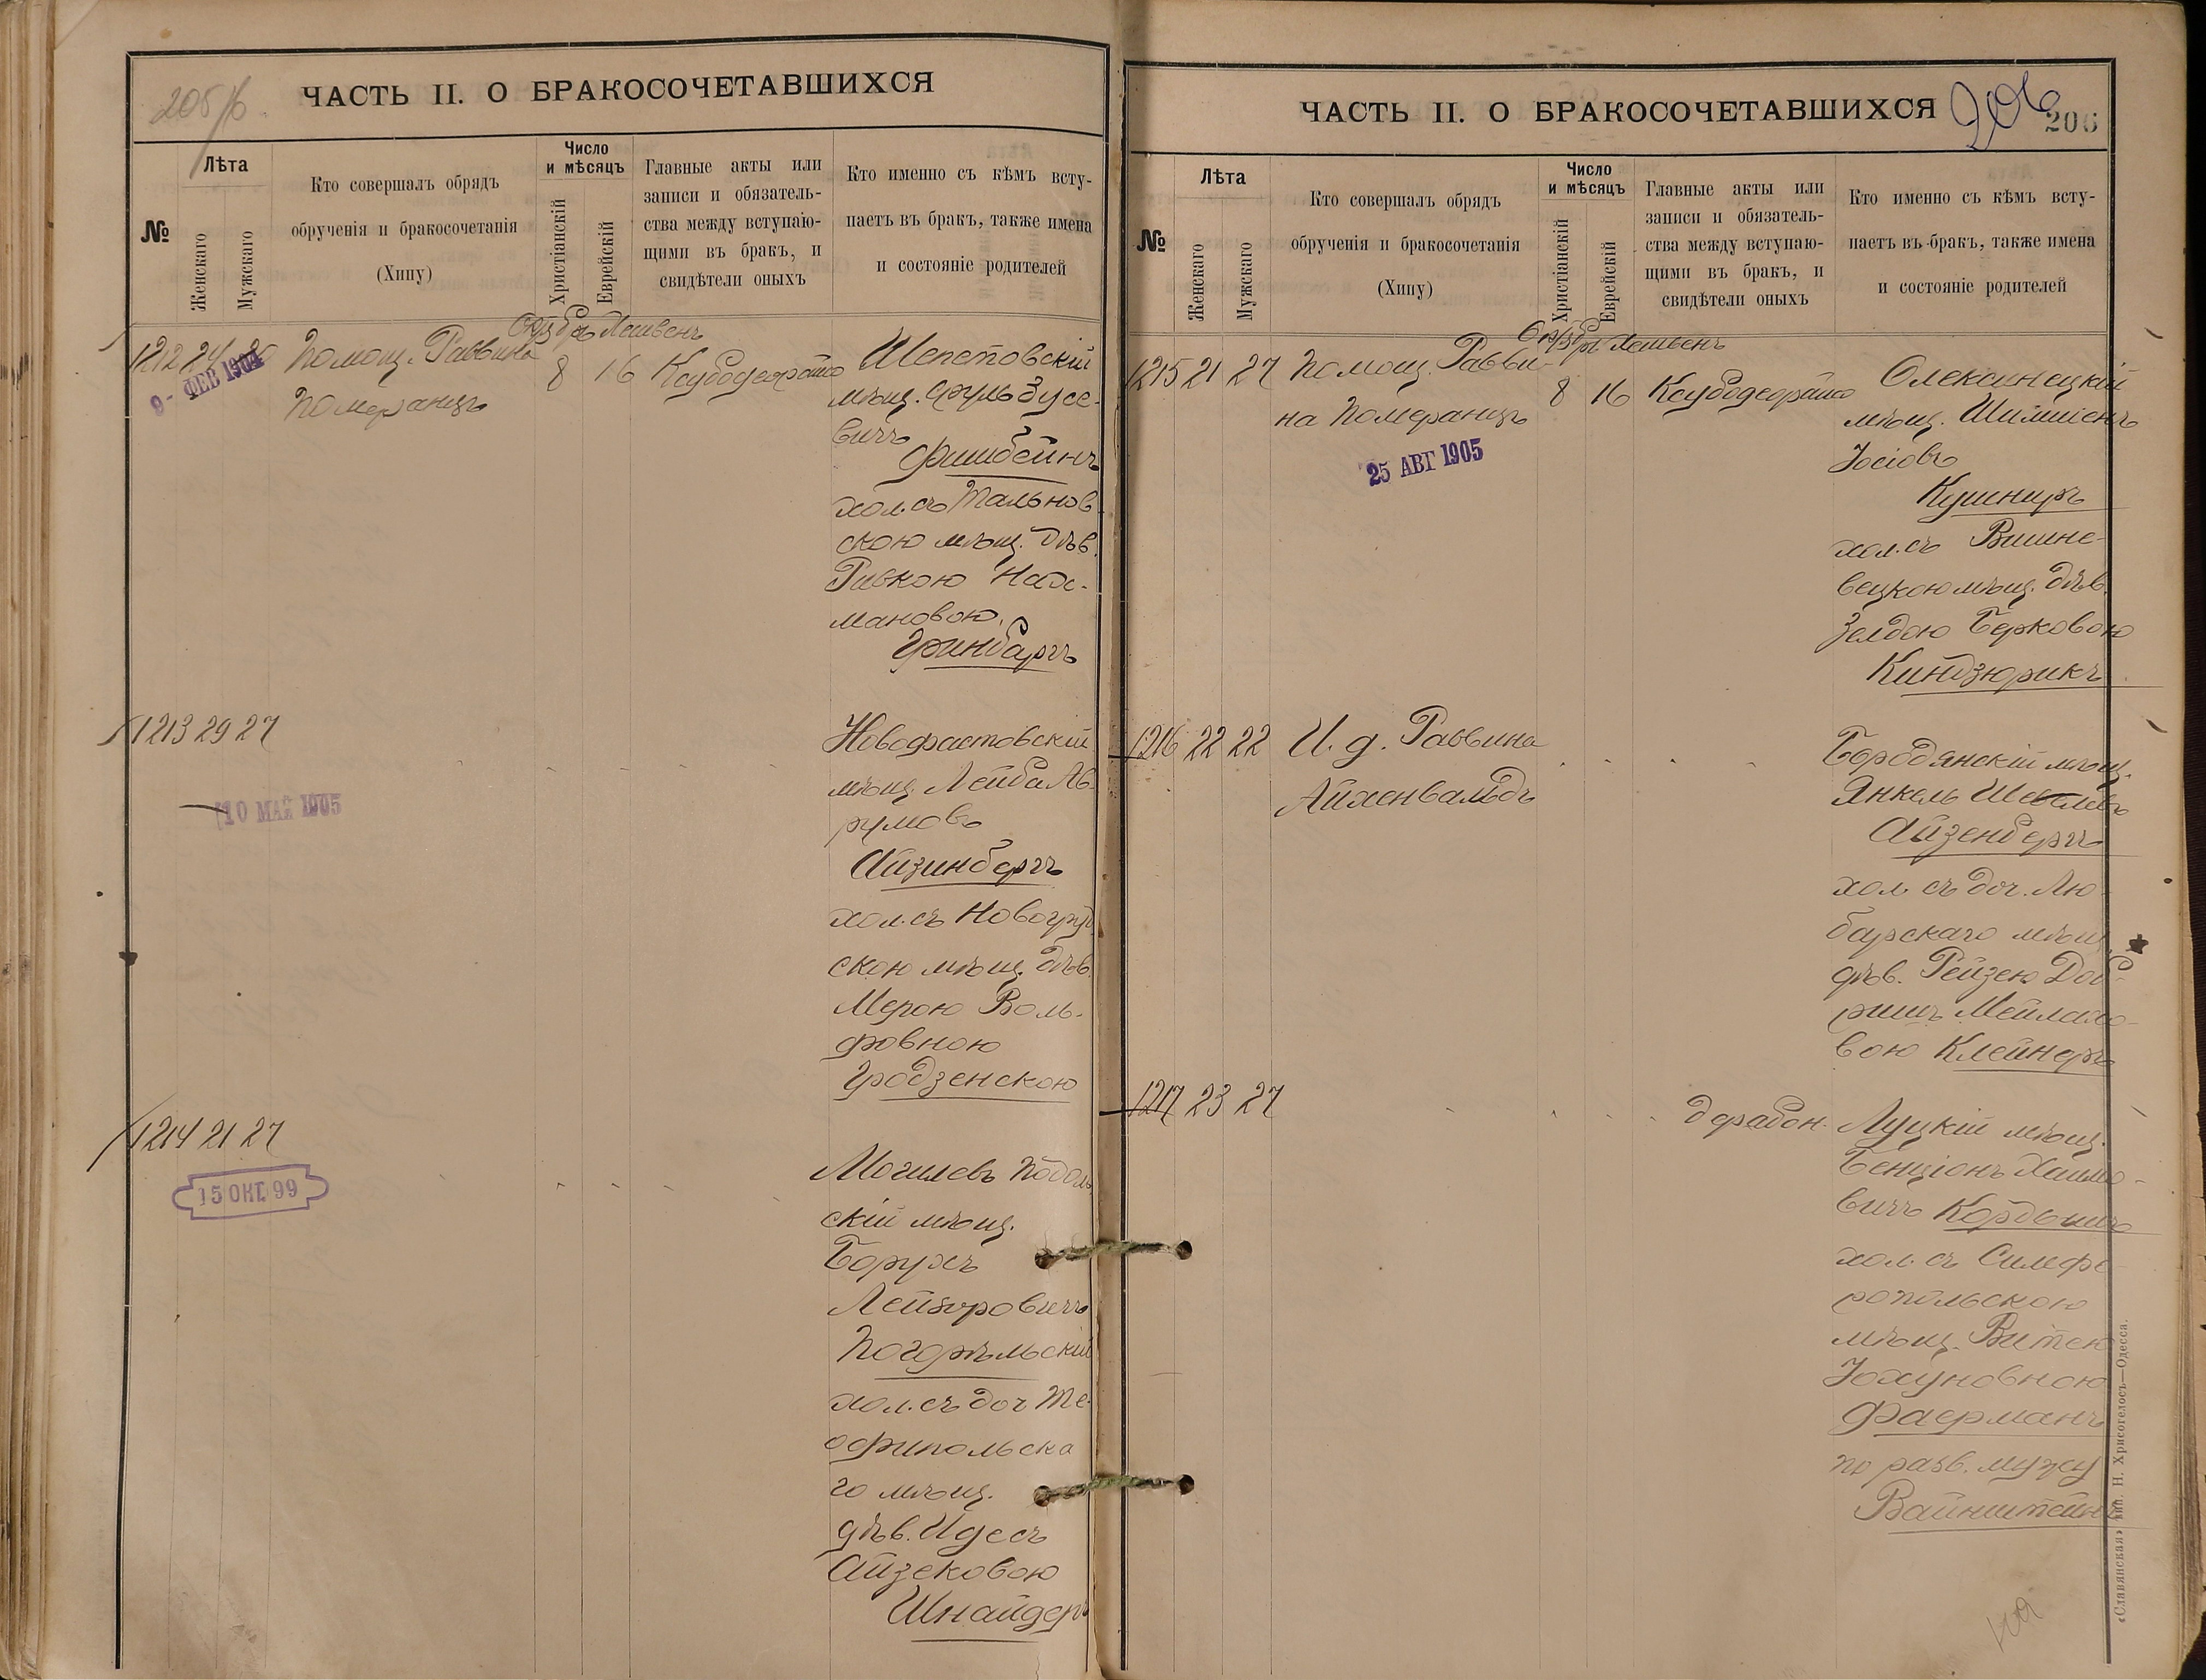 205/б
ЧАСТЬ II. О БРАКОСОЧЕТАВШИХСЯ
№
Лѣта
Женскаго
Мужскаго
Кто совершалъ обрядъ
обрученія и бракосочетанія
(Хипу)
Число
и мѣсяцъ
Христіанскій
Еврейскій
Главные акты или
записи и обязатель-
ства между вступаю-
щими въ бракъ, и
свидѣтели оныхъ
Кто именно съ кѣмъ всту-
паетъ въ бракъ, также имена
и состояніе родителей
1212 24 30
9- ФЕВ 1904
Помощ. Раввина
Померанцъ
Октбръ Хешвенъ
8 16
Шепетовскій
мѣщ. Сруль Зусе-
вичъ
Фишбейнъ
хол. съ Тальнов
скою мѣщ. дѣв.
Ривкою Нах-
мановою
Гринбаргъ
1213 29 27
10 МАЙ 1905
Новофастовскій
мѣщ. Лейба Ав-
румовъ
Айзинбергъ
хол. съ Новогруд
скою мѣщ. дѣв.
Мерою Воль-
фовною
Гродзенскою
1214 21 27
15 ОКТ. 99
Могилевъ Подоль
скій мѣщ.
Борухъ
Лейзоровичъ
Погорѣльскій
хол. съ доч Те-
офипольска
го мѣщ.
дѣв. Идесъ
Айзековою
Шнайдеръ
ЧАСТЬ II. О БРАКОСОЧЕТАВШИХСЯ
206
206
№
Лѣта
Женскаго
Мужскаго
Кто совершалъ обрядъ
обрученія и бракосочетанія
(Хипу)
Число
и мѣсяцъ
Христіанскій
Еврейскій
Главные акты или
записи и обязатель-
ства между вступаю-
щими въ бракъ, и
свидѣтели оныхъ
Кто именно съ кѣмъ всту-
паетъ въ бракъ, также имена
и состояніе родителей
1215 21 27
Помощ. Равви-
на Померанцъ
25 АВГ 1905
Октбръ Хешвенъ
8 16
Олексинецкій
мѣщ. Шимшенъ
Іосіовъ
Кушниръ
хол. съ Вишне-
вецкою мѣщ. дѣв.
Зелдою Берковою
Киндзюрикъ
1216 22 22
И. д. Раввина
Айхенвальдъ
Бородянскій мѣщ.
Янкель Шевелевъ
Айзенбергъ
хол. съ доч. Лю-
барскаго мѣщ.
дѣв. Рейзею Доб-
ришъ Мейлахо-
вою Клейнеръ
1217 23 27
Луцкій мѣщ.
Бенціонъ Хаимо-
вичъ Кордышъ
хол. съ Симфе
ропольскою
мѣщ. Витею
Іохуновною
Фаерманъ
по разв. мужу
Вайнштейнъ
«Славянская» тип. Н. Хрисогелосъ—Одесса.